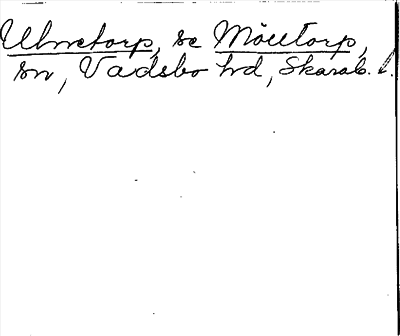 Ulvretorp, se Möltorp,
sn, Vadsbo hd, Skarab. l.